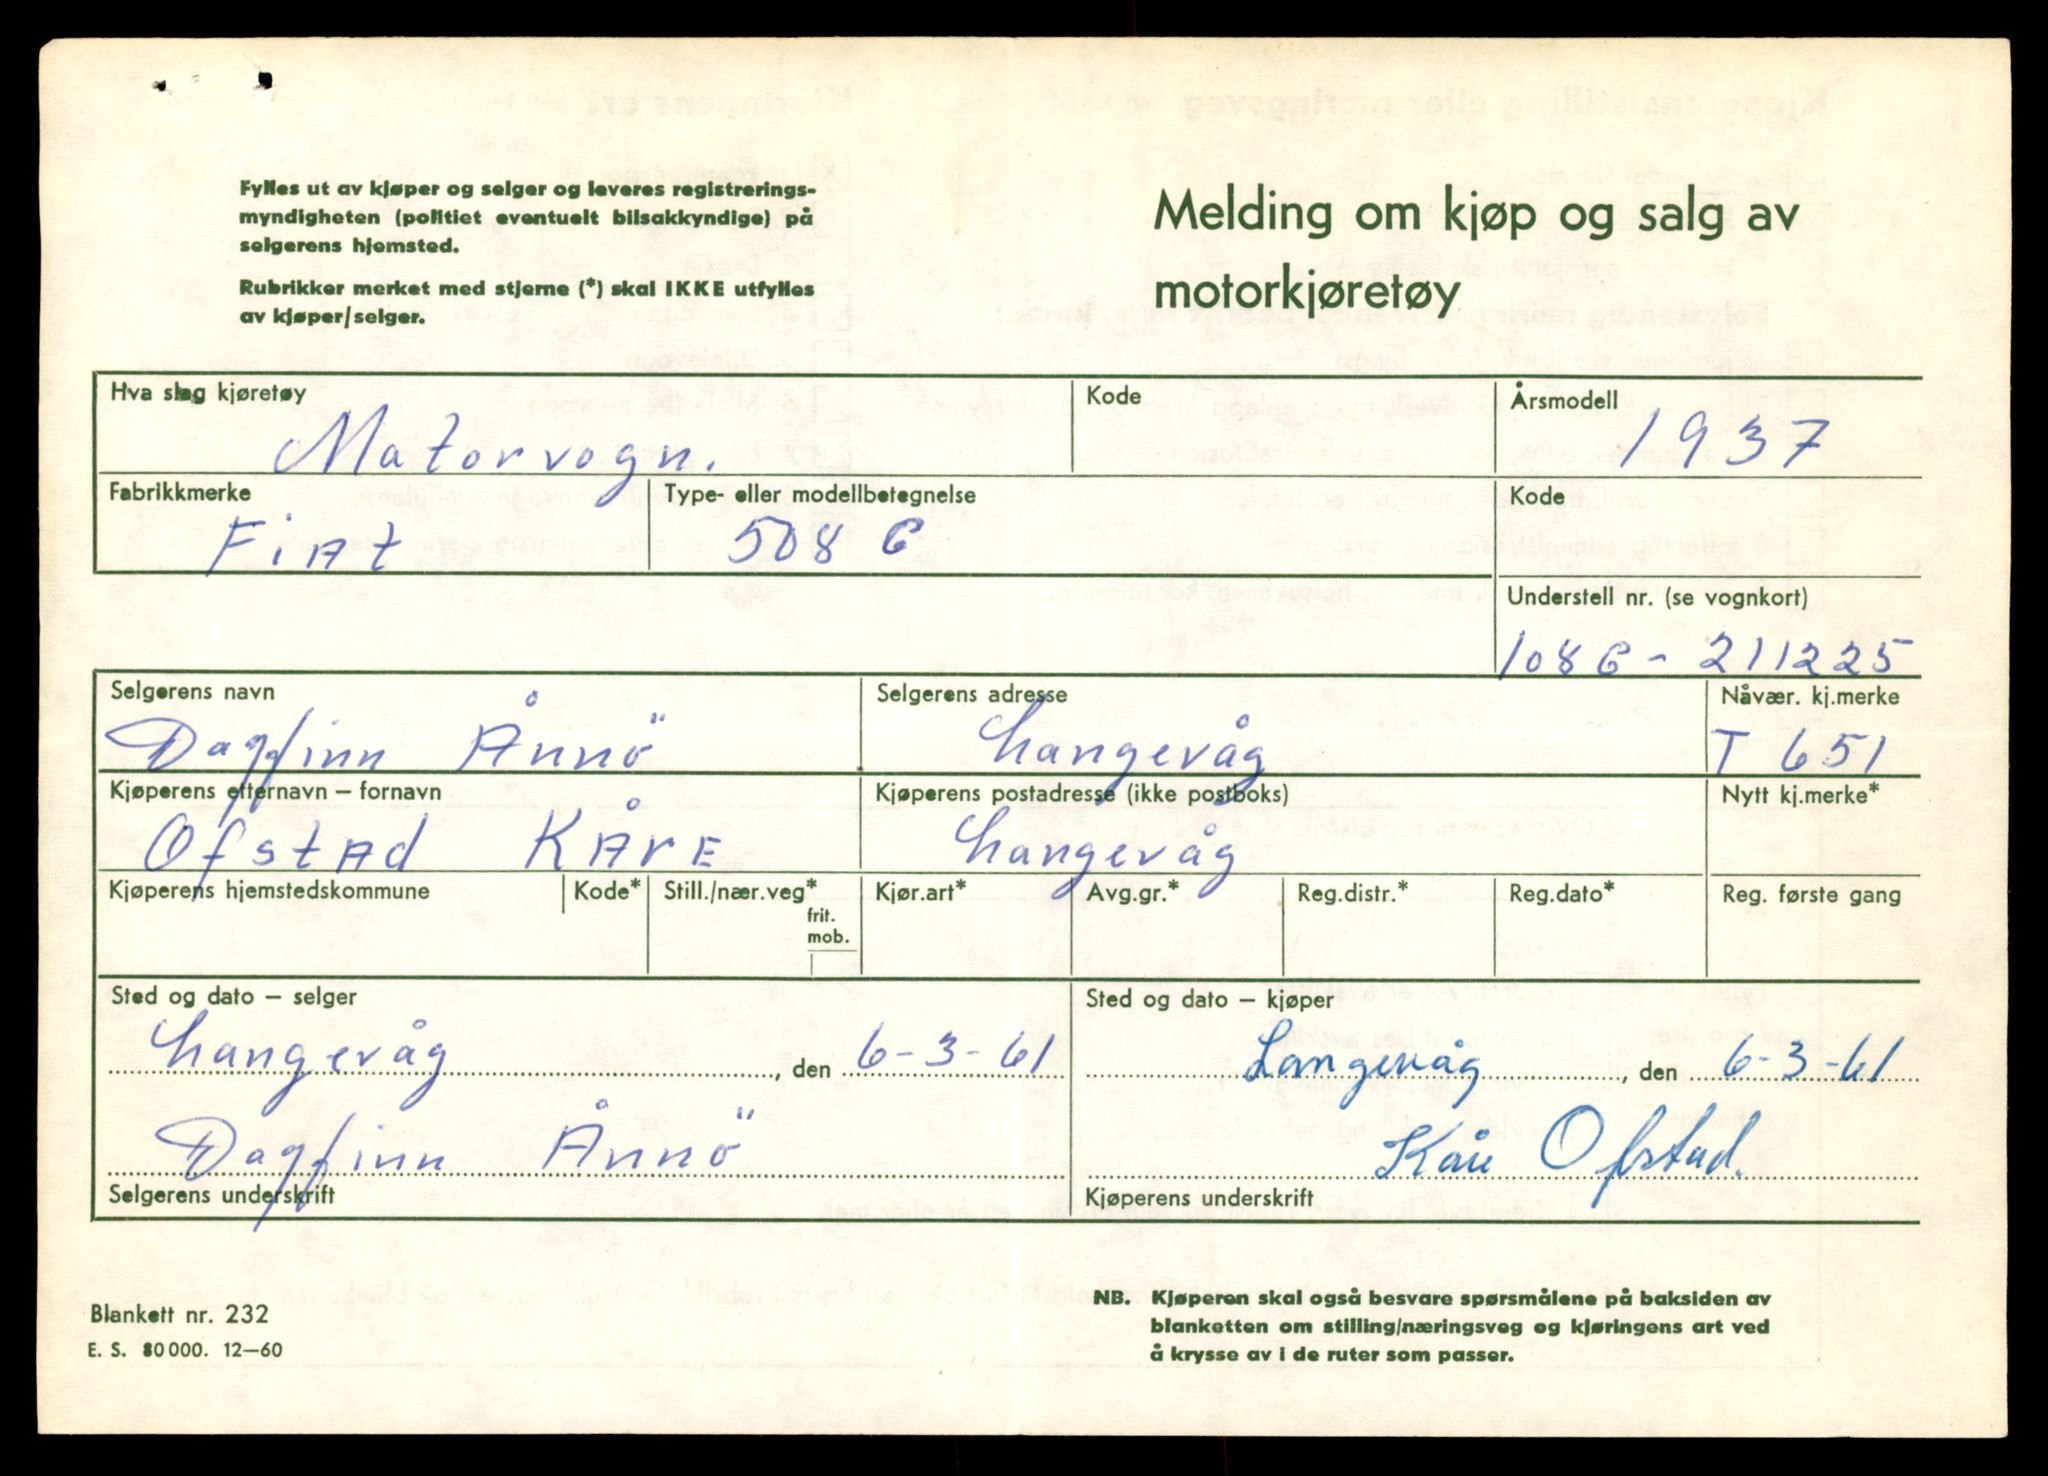 Fylles ut av kjøper og selger og leveres registrerings-
myndigheten (politiet eventuelt bilsakkyndige) på
selgerens hjemsted.
Rubrikker merket med stjerne (*) skal IKKE utfylles
av kjøper/selger.
Melding om kjøp og salg av
motorkjøretøy
Hva slag kjøretøy
Kode
Årsmodell
Matorvogn.
1937
Fabrikkmerke
Type- eller modellbetegnelse
Kode
Fiat
508 C
Understell nr. (se vognkort)
108 C - 211225
Selgerens navn
Selgerens adresse
Nåvær. kj.merke
Dagfinn Ånnö
Langevåg
T 651
Kjøperens etternavn – fornavn
Kjøperens postadresse (ikke postboks)
Nytt kj.merke*
Ofstad Kåre
Langevåg
Kjøperens hjemstedskommune
Kode*
Still./nær.veg*
frit.
mob.
Kjør.art*
Avg.gr.*
Reg.distr.*
Reg.dato*
Reg. første gang
Sted og dato – selger
Langevåg, den 6-3-61
Dagfinn Ånnö
Selgerens underskrift
Sted og dato – kjøper
Langevåg, den 6-3-61
Kåre Ofstad.
Kjøperens underskrift
Blankett nr. 232
E. S. 80 000. 12–60
NB. Kjøperen skal også besvare spørsmålene på baksiden av
blanketten om stilling/næringsveg og kjøringens art ved
å krysse av i de ruter som passer.